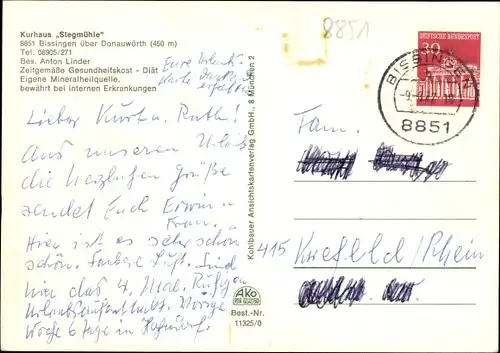 Kurhaus „Stegmühle"
8851 Bissingen über Donauwörth (450 m)
Tel. 08905/271
Bes. Anton Linder
Zeitgemäße Gesundheitskost - Diät
Eigene Mineralheilquelle,
bewährt bei internen Erkrankungen
Eure Urlaubs-
karte dankend
erhalten
Lieber Kurt u. Ruth!
Aus unseren Urlaub
die herzlichen Grüße
sendet Euch Erwin u
Frau.
Hier ist es sehr schön
schön. Saubere Luft. Sind
hier das 4. Mal.
Urlaubsaufenthalt. Vorige
Woche 6 Tage in
Kohlbauer Ansichtskartenverlag GmbH., 8 München 2
AKO
Best.-Nr.
11325/0
8851
DEUTSCHE BUNDESPOST
30
BISSINGEN
8851
Fam.
415 Krefeld/Rhein